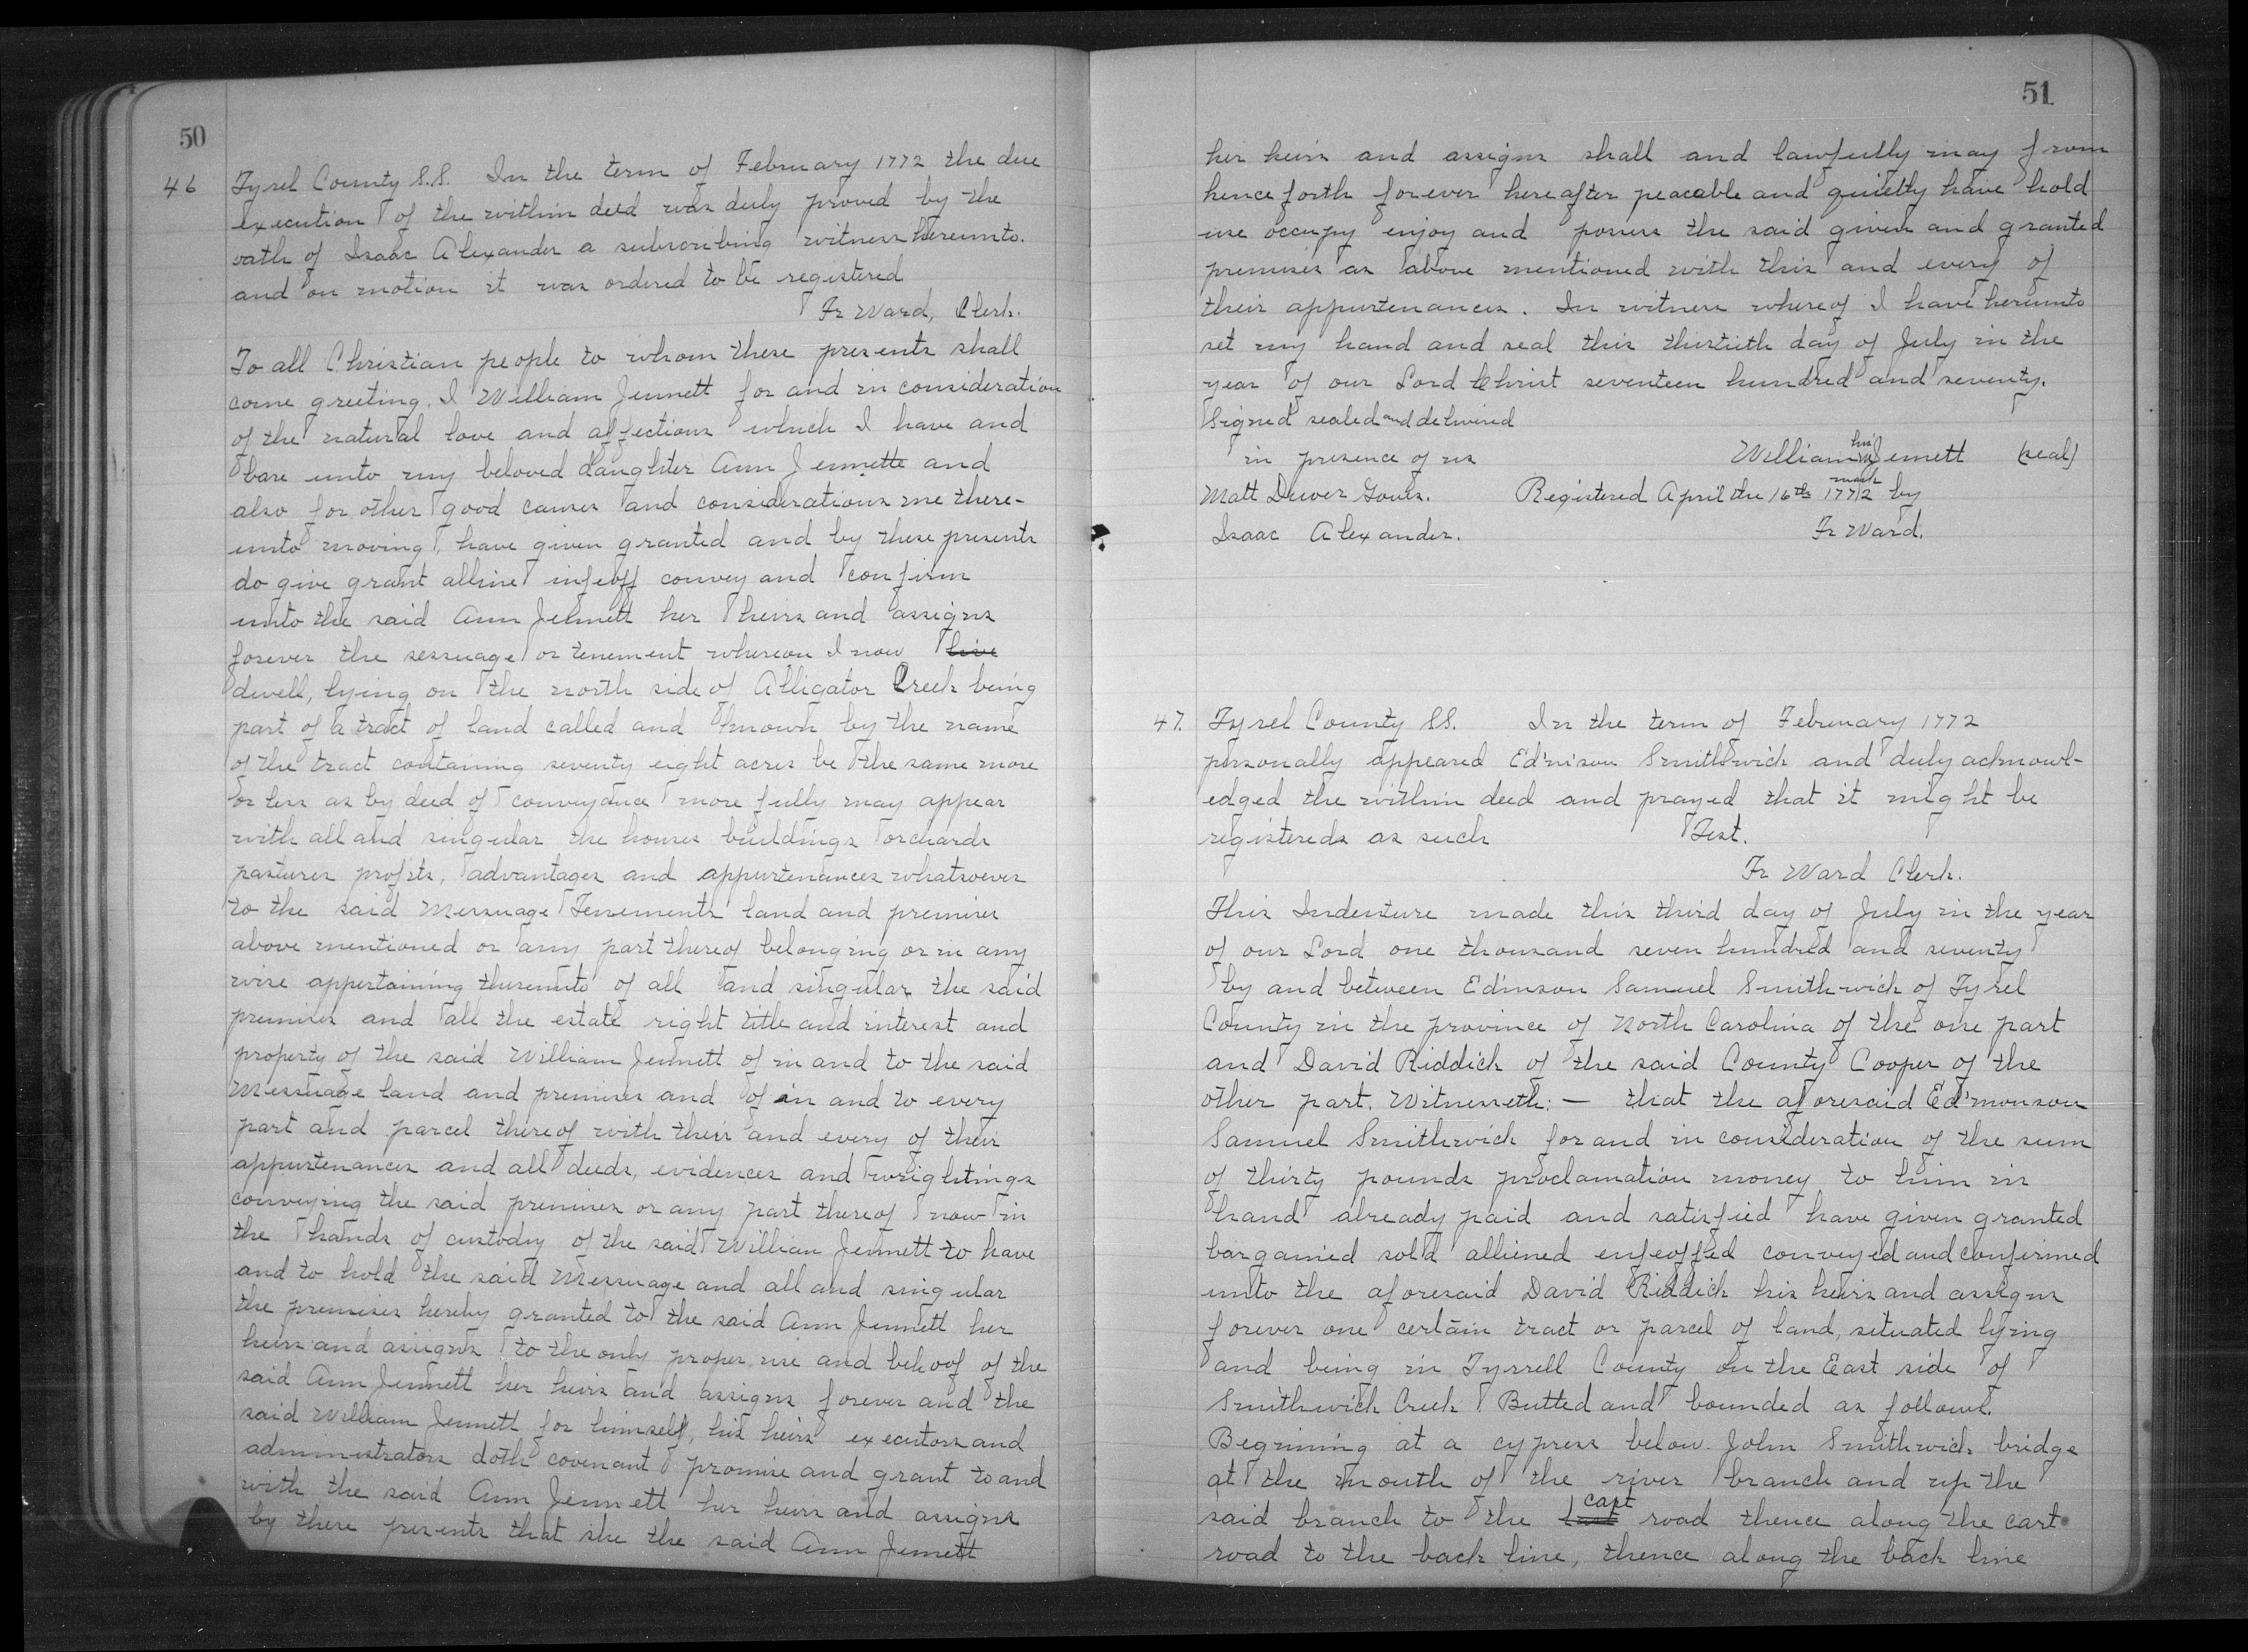 50
46 Tyrel County S.S. In the term of February 1772 the due
execution of the within deed was duly proved by the
oath of Isaac Alexander a subscribing witness hereunto.
and on motion it was ordered to be registered
Fr Ward, Clerk.
To all Christian people to whom these presents shall
come greeting. I William Jennett for and in consideration
of the natural love and affections which I have and
bare unto my beloved daughter Ann Jennette and
also for other good causes and considerations me there-
unto moving, have given granted and by these presents
do give grant alline infeoff convey and confirm
unto the said Ann Jennett her heirs and assigns
forever the sessuage or tenement whereon I now live
dwell, lying on the north side of Alligator Creek being
part of a tract of land called and known by the name
of the tract contaning seventy eight acres be the same more
or less as by deed of conveyance more fully may appear
with all and singular the houses buildings orchards
pastures profits, advantages and appurtenances whatsoever
to the said Messuage Tenements land and premises
above mentioned or any part thereof belonging or in any
wise appertaining thereunto of all and singular the said
premises and all the estate right title and interest and
property of the said William Jennett of in and to the said
Messuage land and premises and of in and to every
part and parcel thereof with their and every of their
appurtenances and all deeds, evidences and wrightings
conveying the said premises or any part thereof now in
the hands of custody of the said William Jennett to have
and to hold the said Messuage and all and singular
the premises hereby granted to the said Ann Jennett her
heirs and assigns to the only proper use and behoof of the
said Ann Jennett her heirs and assigns forever and the
said William Jennett for himself, his heirs executors and
administrators doth covenant promise and grant to and
with the said Ann Jennett her heirs and assigns
by these presents that she the said Ann Jennett
51
her heirs and assigns shall and lawfully may from
henceforth forever hereafter peacable and quietly have hold
use occupy enjoy and possess the said given and granted
premises as above mentioned with this and every of
their appurtenances. In witness whereof I have hereunto
set my hand and seal this thirtieth day of July in the
year of our Lord Christ seventeen hundred and seventy.
Signed sealed and delivered
in presence of us William his mark Jennett (seal)
Matt Duver Registered April the 16th 1772 by
Isaac Alexander. Fr Ward.
47. Tyrel County SS. In the term of February 1772
personally appeared Ed'mison Smithwich and duly acknowl-
edged the within deed and prayed that it might be
registereds as such Test.
Fr Ward Clerk.
This Indenture made this third day of July in the year
of our Lord one thousand seven hundred and seventy
by and between Edmson Samuel Smithwich of Tyrel
County in the province of North Carolina of the one part
and David Riddick of the said County Cooper of the
other part. Witnesseth: — that the aforesaid Ed'monson
Samuel Smithwich for and in consideration of the sum
of thirty pounds proclamation money to him in
hand already paid and satisfied have given granted
bargained sold alliened enfeoffed conveyed and confirmed
unto the aforesaid David Riddick his heirs and assigns
forever one certain tract or parcel of land, situated lying
and being in Tyrrell County on the East side of
Smithwich Creek Butted and bounded as follows.
Begining at a cypress below John Smithwich bridge
at the mouth of the river branch and up the
said branch to the cart road thence along the cart
road to the back line, thence along the back line